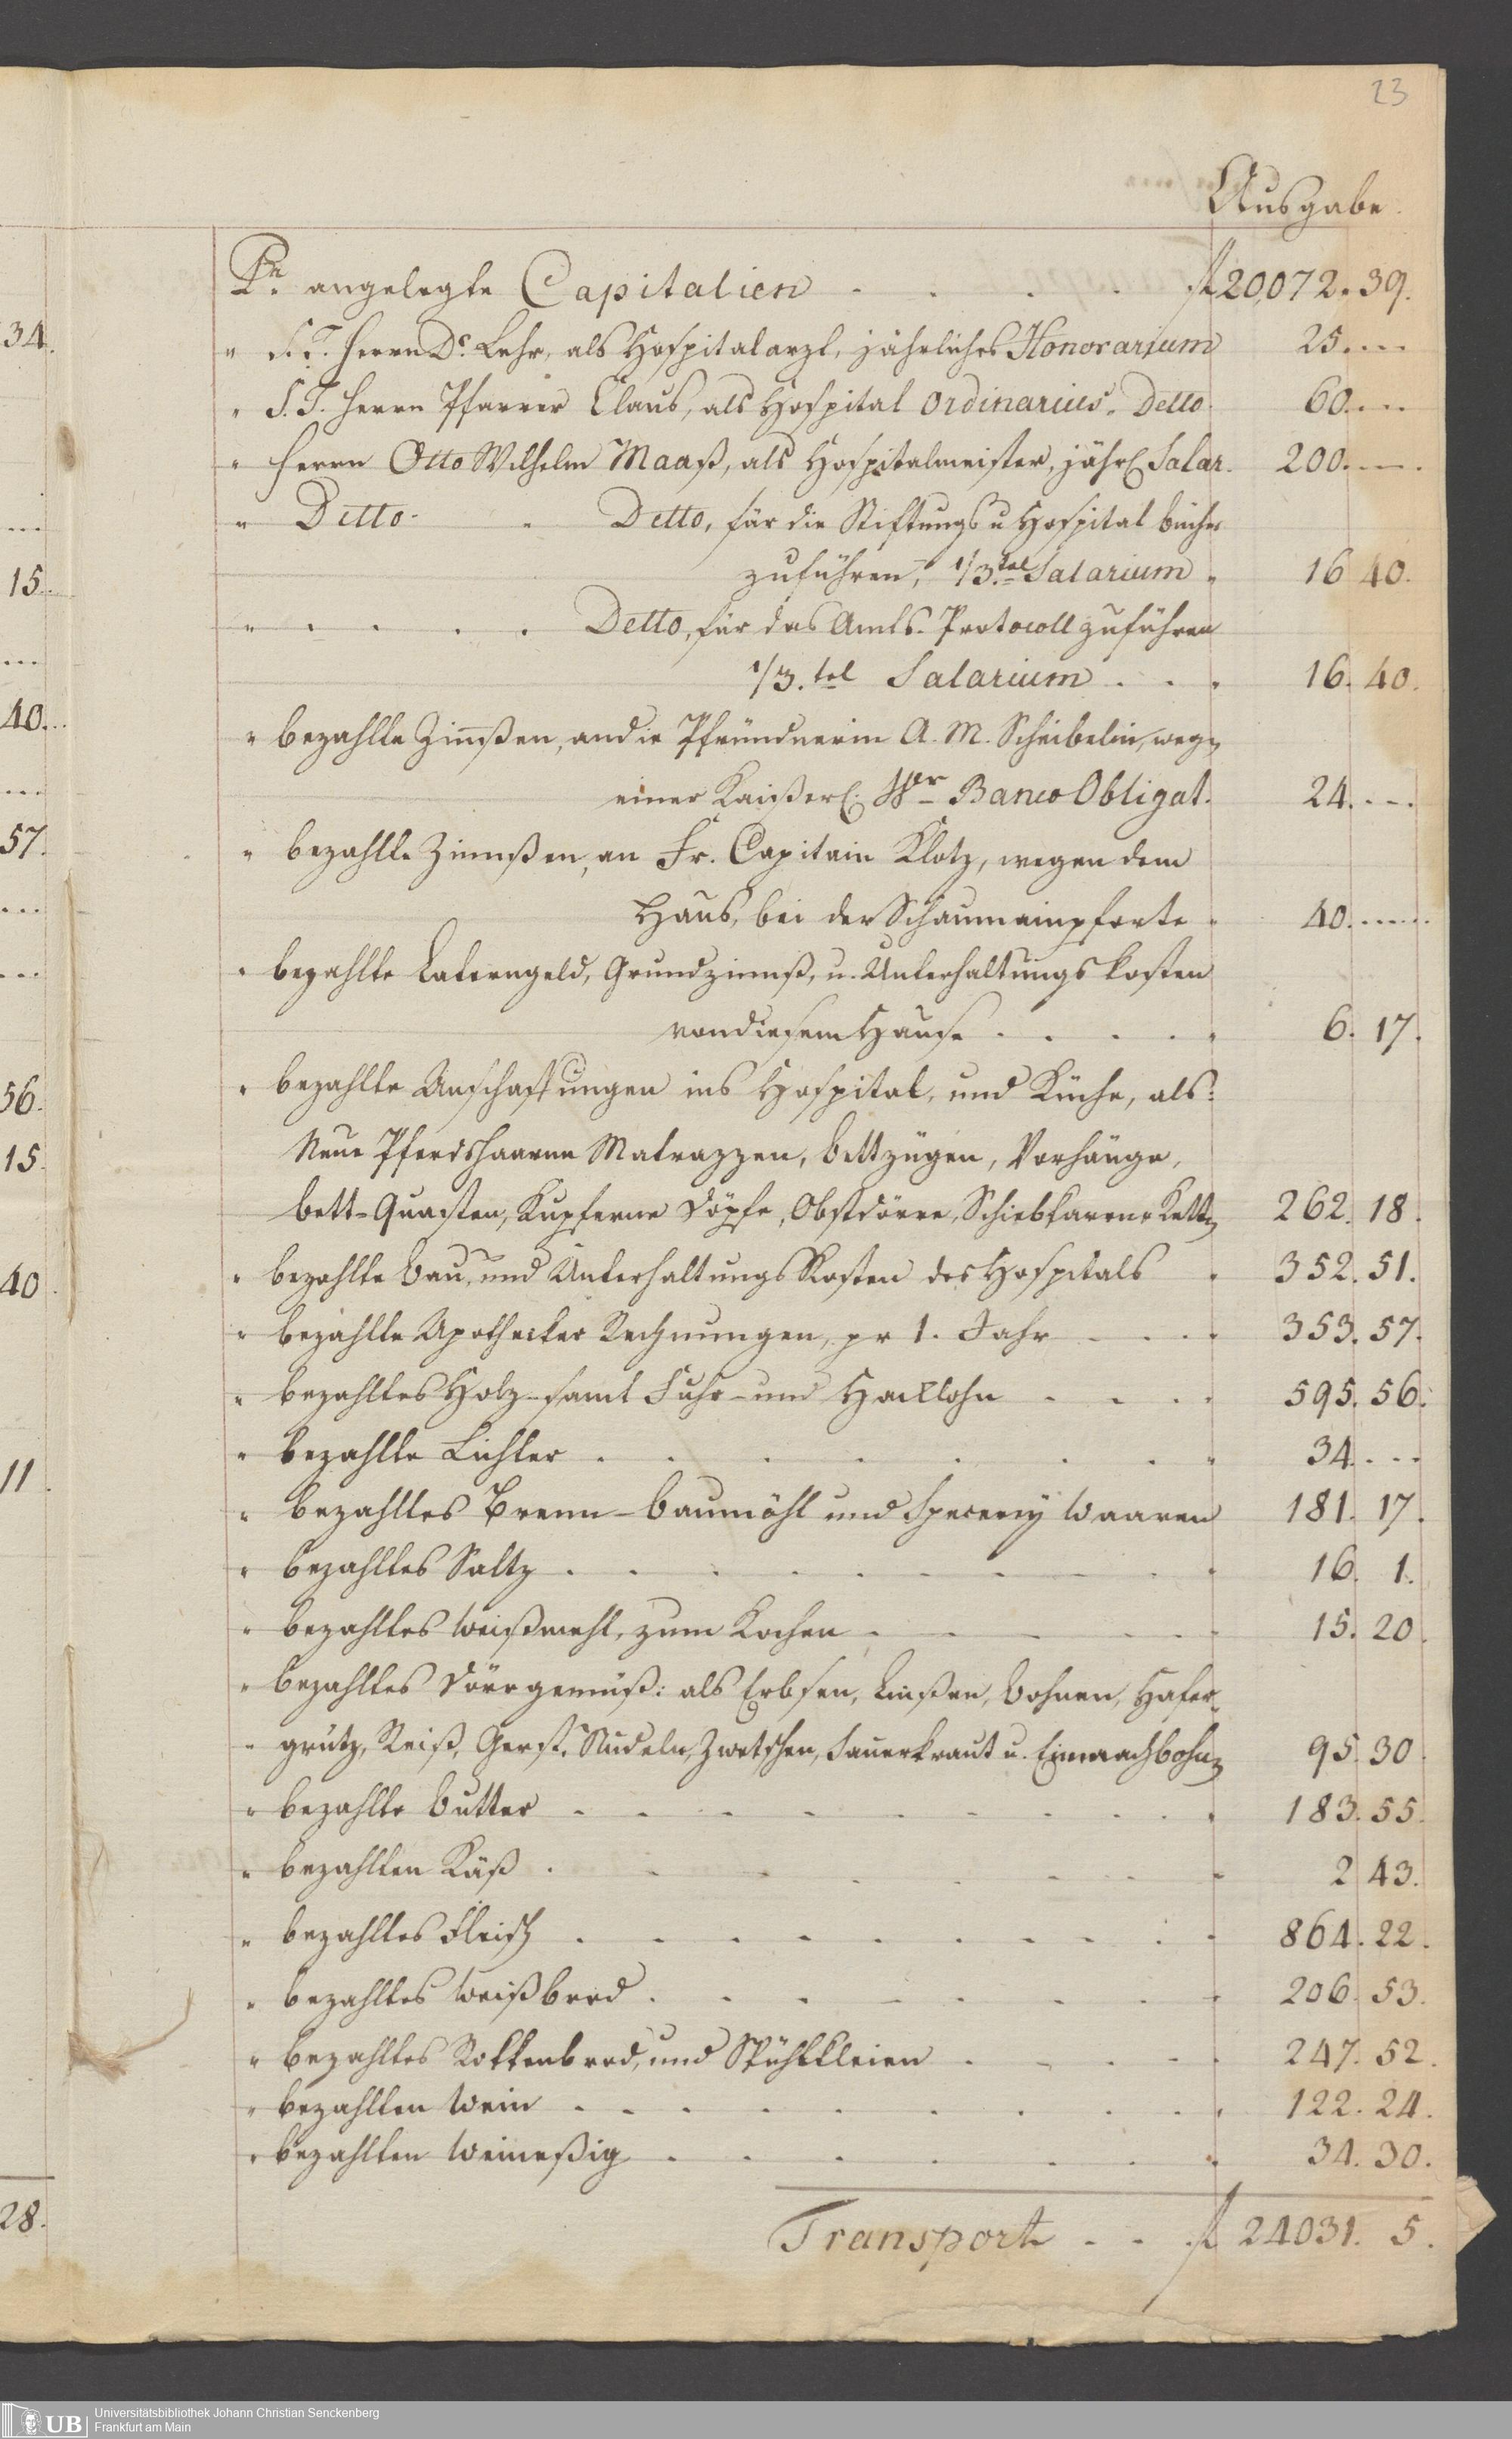 23
Ausgabe.
Pr. angelegte Capitalien . . . . f 20,072. 39.
" S. T. Herrn Dr. Lehr, als Hospitalarzt, jährliches Honorarium 25. ---
" S. T. Herrn Pfarrer Claus, als Hospital Ordinarius. Detto. 60. ---
" Herrn Otto Wilhelm Maaß, als Hospitalmeister, jährl. Salar. 200. ---
" Ditto. " Detto, für die Stiftungs u Hospital bücher
zuführen, 1/3.tel Salarium " 16 40.
" . . . . . Detto, für das Amts-Protocoll zuführen
1/3.tel Salarium . . . 16. 40.
" bezahlte Zinnßen, an die Pfründnerin A. M. Scheibelin, wegn
einer Kaißerl. Wr Banco Obligat. 24. ---
" bezahlte Zinnßen, an Fr. Capitain Klotz, wegen dem
Haus, bei der Schaumainpforte " 40. ---
" bezahlte Laterngeld, Grundzinnß, u. Unterhaltungskosten
von diesem Hause . . . . . 6. 17.
" bezahlte Anschaffungen ins Hospital, und Küche, als:
Neue Pferdshaarne Matrazzen, Bettzügen, Vorhänge,
bett-Quasten, Kupferne Döpfe, Obstdörre, Schiebkarrn, Kettn 262. 18.
" bezahlte Bau, und Unterhaltungs Kosten des Hospitals " 352. 51.
" bezahlte Apothecker Rechnungen, pr 1. Jahr . . . . 353. 57.
" bezahltes Holz-samt Fuhr-und Hacklohn . . . . 595. 56.
" bezahlte Lichter . . . . . . . . 34. ---
" bezahltes Brenn-baumöhl und Specerey Waaren 181. 17.
" bezahltes Saltz . . . . . . . . . 16. 1.
" bezahltes Weißmehl, zum Kochen . . . . . . 15. 20.
" bezahltes Dörrgemüß: als Erbsen, Linßen, Bohnen, Hafer-
" grütz, Reiß, Gerst, Nudeln, Zwetschen, Sauerkraut u. Einmachbohnn 95. 30.
" bezahlte Butter . . . . . . . . . 183. 55.
" bezahlten Käß . . . . . . . 2 43.
" bezahltes Fleisch . . . . . . . . . 864. 22.
" bezahltes Weißbrod . . . . . . . . 206. 53.
" bezahltes Rokkenbrod, und Spühlkleien . . . . . 247. 52.
" bezahlten Wein . . . . . . . . . 122. 24.
" bezahlten Weineßig . . . . . . . 34. 30.
Transport . . . f 24031. 5.
34.
...
15.
...
40.
...
57.
...
...
56.
15.
40.
11.
28.
UB
Universitätsbibliothek Johann Christian Senckenberg
Frankfurt am Main